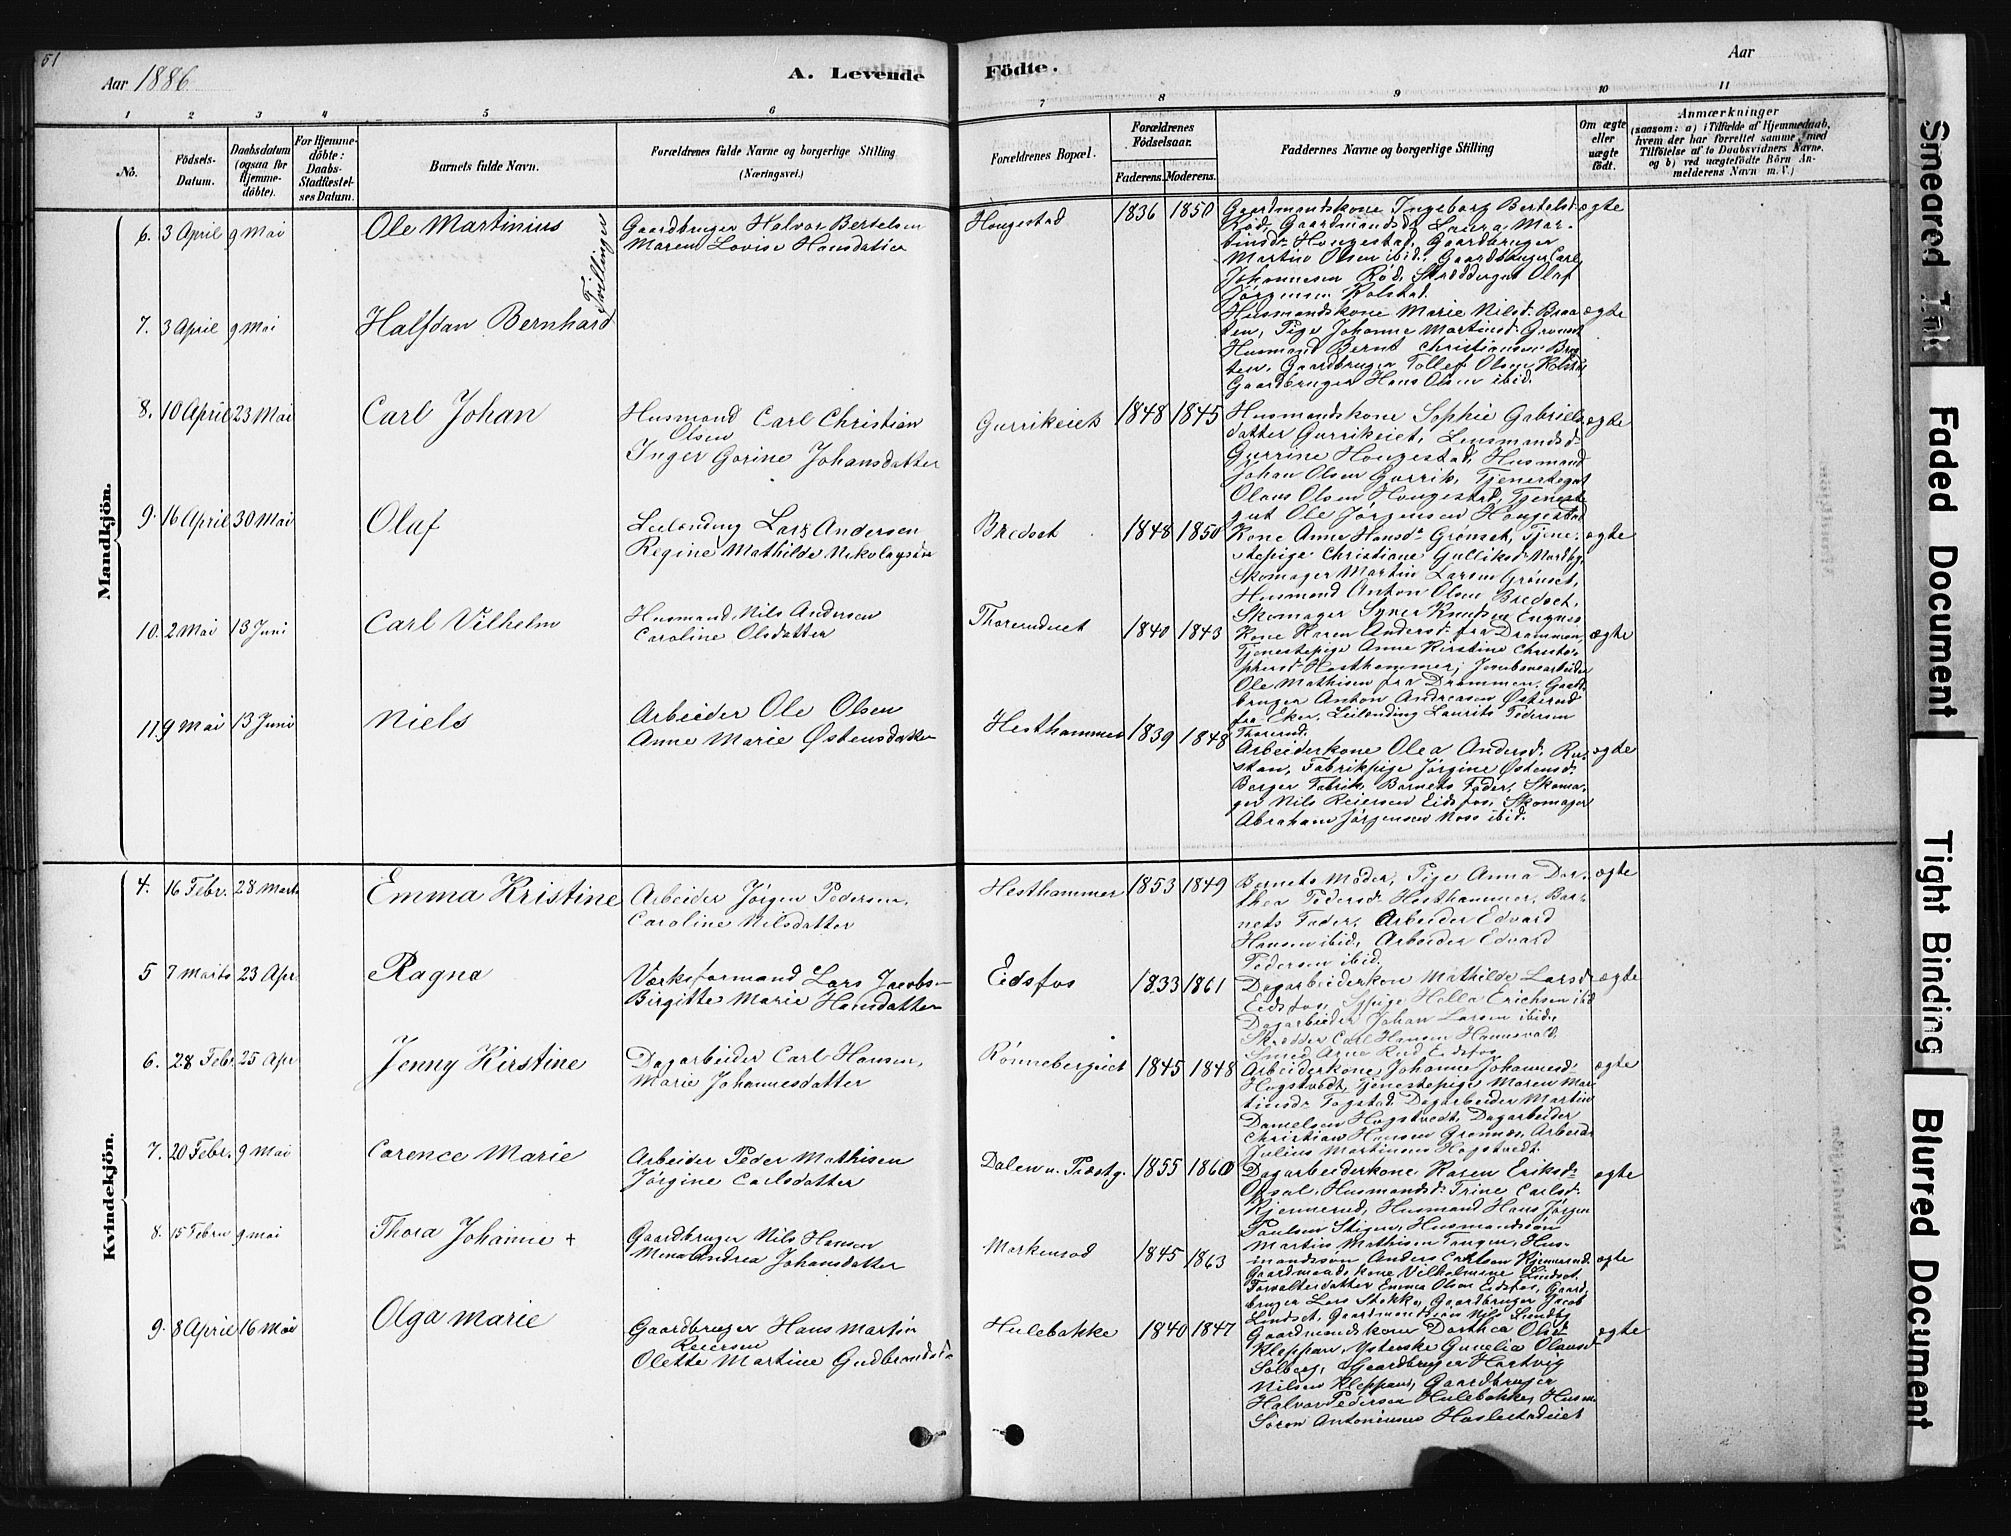 51
Aar 1886
A. Levende
Födte.
Aar
1 2 3 4 5 6 7 8 9 10 11
No.
Födsels-
Datum.
Daabsdatum
(ogsaa for
Hjemme-
döbte).
For Hjemme-
döbte:
Daabs-
Stadfæstel-
ses Datum.
Barnets fulde Navn.
Forældrenes fulde Navne og borgerlige Stilling
(Næringsvei.)
Forældrenes Bopæl.
Forældrenes
Födselsaar.
Faderens. Moderens.
Faddernes Navne og borgerlige Stilling
Om ægte
eller
uægte
födt.
Anmærkninger
(saasom: a) i Tilfælde af Hjemmedaab,
hvem der har forrettet samme, med
Tilföielse af to Daabsvidners Navne,
og b) ved uægtefödte Börn An-
melderens Navn m. V.)
Mandkjön.
6. 3 April 9 Mai Ole Martinius
Tvillinger
Gaardbruger Halvor Bertelsen
Maren Lovise Hansdatter
Hougestad 1836 1850
Gaardmandskone Ingeborg Bertelsd.
Rød, Gaardmandsdt. Laura Mar-
tinsdr. Hougestad, Gaardbruger
Martin Olsen ibid., Gaardbruger Carl
Johannesen Rød, Skræddergut Olaf
Jörgensen Kolstad.
ægte
7. 3 April 9 Mai Halfdan Bernhard
Husmandskone Marie Nilsd. Braa-
ten, Pige Johanne Martinsd. Grønset
Husmand Bernt Christiansen Braa-
ten, Gaardbruger Tollef Olsen Kolstad
Gaardbruger Hans Olsen ibid.
ægte
8. 10 April 23 Mai Carl Johan
Husmand Carl Christian
Olsen
Inger Gorine Johansdatter
Gurrikeiet 1848 1845
Husmandskone Sophie Gabriels-
datter Gurrikeiet, Lensmandsd.
Gurrine Hougestad, Husmand
Johan Olsen Gurrik, Tjenestegut
Olaus Olsen Hougestad, Tjeneste-
gut Ole Jørgensen Hougestad
ægte
9. 16 April 30 Mai Oluf
Leilænding Lars Andersen
Regine Mathilde Nikolaysd.
Bredset 1848 1850
Kone Anne Hansd. Grønset, Tjene-
stepige Christiane Gulliksd. Nordby
Skomager Martin Larsen Grönset,
Husmand Anton Olsen Bredset,
Skomager Syver Knudsen Engnes
ægte
10. 2 Mai 13 Juni Carl Vilhelm
Husmand Nils Andersen
Caroline Olsdatter
Thorerudeiet 1840 1843
Kone Karen Andersd. fra Drammen,
Tjenestepige Anne Kirstine Christo-
phersd. Hesthammer, Jernbanearbeider
Ole Mathisen fra Drammen, Gaard-
bruger Anton Andreasen Østerud
fra Eker, Leilænding Laurits Pedersen
Thorerud.
ægte
11. 9 Mai 13 Juni Niels
Arbeider Ole Olsen
Anne Marie Østensdatter
Hesthammer 1839 1848
Arbeiderkone Olea Andersd. Ru-
stan, Fabrikpige Jørgine Østensd.
Berger Fabrik, Barnets Fader, Skoma-
ger Nils Reiersen Eidsfos, Skomager
Abraham Jørgensen Moss ibid.
ægte
Kvindekjön.
4. 16 Febr. 28 Marts Emma Kristine
Arbeider Jörgen Pedersen,
Caroline Nilsdatter
Hesthammer 1853 1849
Barnets Moder, Pige Anna Dor-
thea Pedersd. Hesthammer, Bar-
nets Fader, Arbeider Edvard
Hansen ibid., Arbeider Edvard
Pedersen ibid.
ægte
5 7 Marts 23 Apr. Ragna
Værksformand Lars Jacobs-
Birgitte Marie Hansdatter
Eidsfos 1833 1861
Dagarbeiderkone Mathilde Larsd.
Eidsfos, Sypige Helle Erichsen ibid
Dagarbeider Johan Larsen ibid.,
Skrædder Carl Hansen Hannevold,
Smed Arne Rud Eidsfos
ægte
6. 28 Febr. 25 Apr Jenny Kirstine
Dagarbeider Carl Hansen,
Marie Johannesdatter
Rønnebergeiet 1845 1848
Arbeiderkone Johanne Johannesd.
Hogstvedt, Tjenestepige Maren Mar-
tinsd. Fogstad, Dagarbeider Martin
Danielsen Hogstvedt, Dagarbeider
Christian Hansen Grønnes, Arbeider
Julius Martinsen Hogstvedt.
ægte
7. 20 Febr. 9 Mai Carence Marie
Arbeider Peder Mathisen
Jörgine Carlsdatter
Dalen u. Præstg. 1855 1860
Dagarbeiderkone Karen Eriksd.
Opsal, Husmandsd. Trine Carlsd.
Kjennerud, Husmand Hans Jørgen
Paulsen Stigen, Husmandssøn
Martin Mathisen Tangen, Hus-
mandssøn Anders Carlsen Kjennerud
ægte
8. 15 Febru 9 mai Thora Johanne +
Gaardbruger Nils Hansen
Mina Andrea Johansdatter
Morkensod 1845 1863
Gaardmandskone Vilhelmine Lindset,
Forvalterdatter Emma Olsen Eidsfos, Gaard-
bruger Lars Stokke, Gaardbruger Jacob
Lindset, Gaardmandssøn Nils Lindset
ægte
9. 8 April 16 Mai Olga Marie
Gaardbruger Hans Martin
Reiersen
Olette Martine Gudbrandsda
Hulebakke 1840 1847
Gaardmandskone Dorthea Olsd.
Kleppan, Ysterske Gunelia Olausd.
Solberg, Gaardbruger Hartvig
Nilsen Kleppan, Gaardbruger
Halvor Pedersen Hulebakke, Husm.
Søren Antonsen Haslestadeiet
ægte
Smeared Ink
Faded Document
Tight Binding
Blurred Document